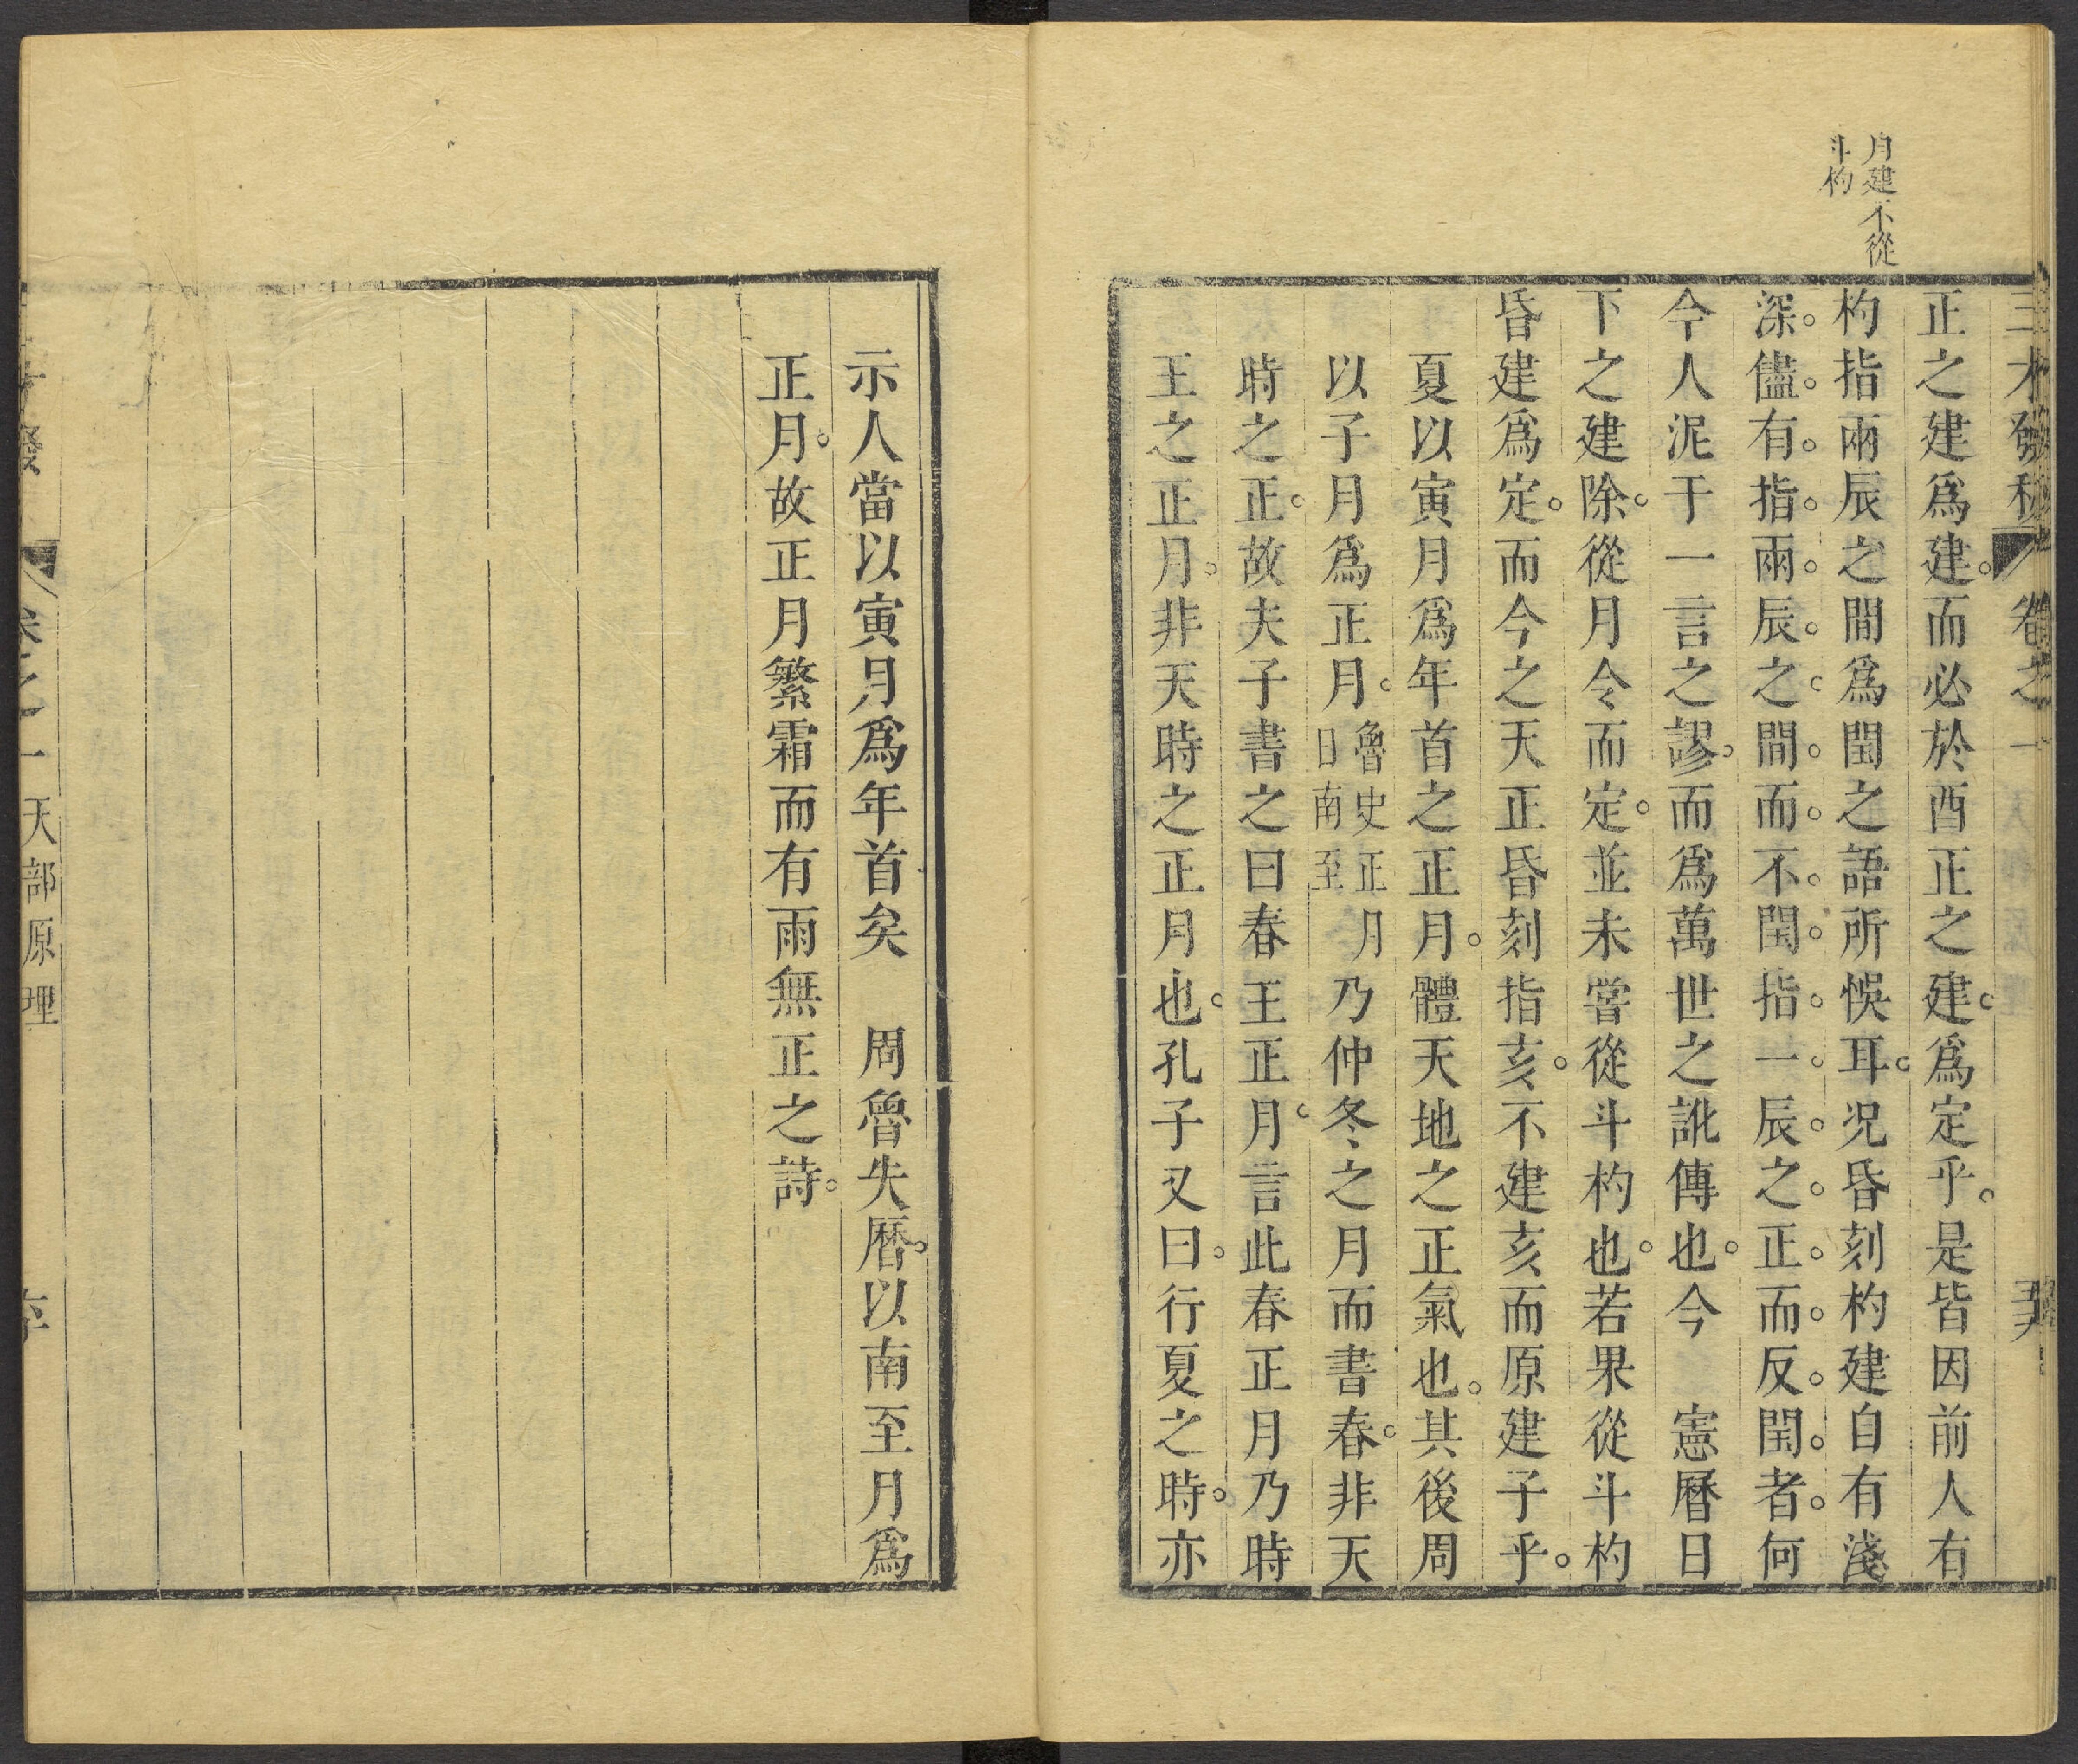 月建不從
斗杓
三才發秘 卷之一 天部原理
正之建爲建。而必於酉正之建。爲定乎。是皆因前人有
杓指兩辰之間爲閏之語所悞耳。况昏刻杓建自有淺
深。儘有指兩辰之間而不閏。指一辰之正而反閏者。何
今人泥于一言之謬。而爲萬世之訛傳也。今 憲曆日
下之建除。從月令而定。並未嘗從斗杓也。若果從斗杓
昏建爲定。而今之天正昏刻指亥。不建亥而原建子乎。
夏以寅月爲年首之正月。體天地之正氣也。其後周
以子月爲正月。魯史正月日南至乃仲冬之月而書春。非天
時之正。故夫子書之曰春王正月。言此春正月乃時
王之正月。非天時之正月也。孔子又曰。行夏之時。亦
示人當以寅月爲年首矣 周魯失曆。以南至月爲
正月。故正月繁霜而有雨無正之詩。
卷之一 天部原理